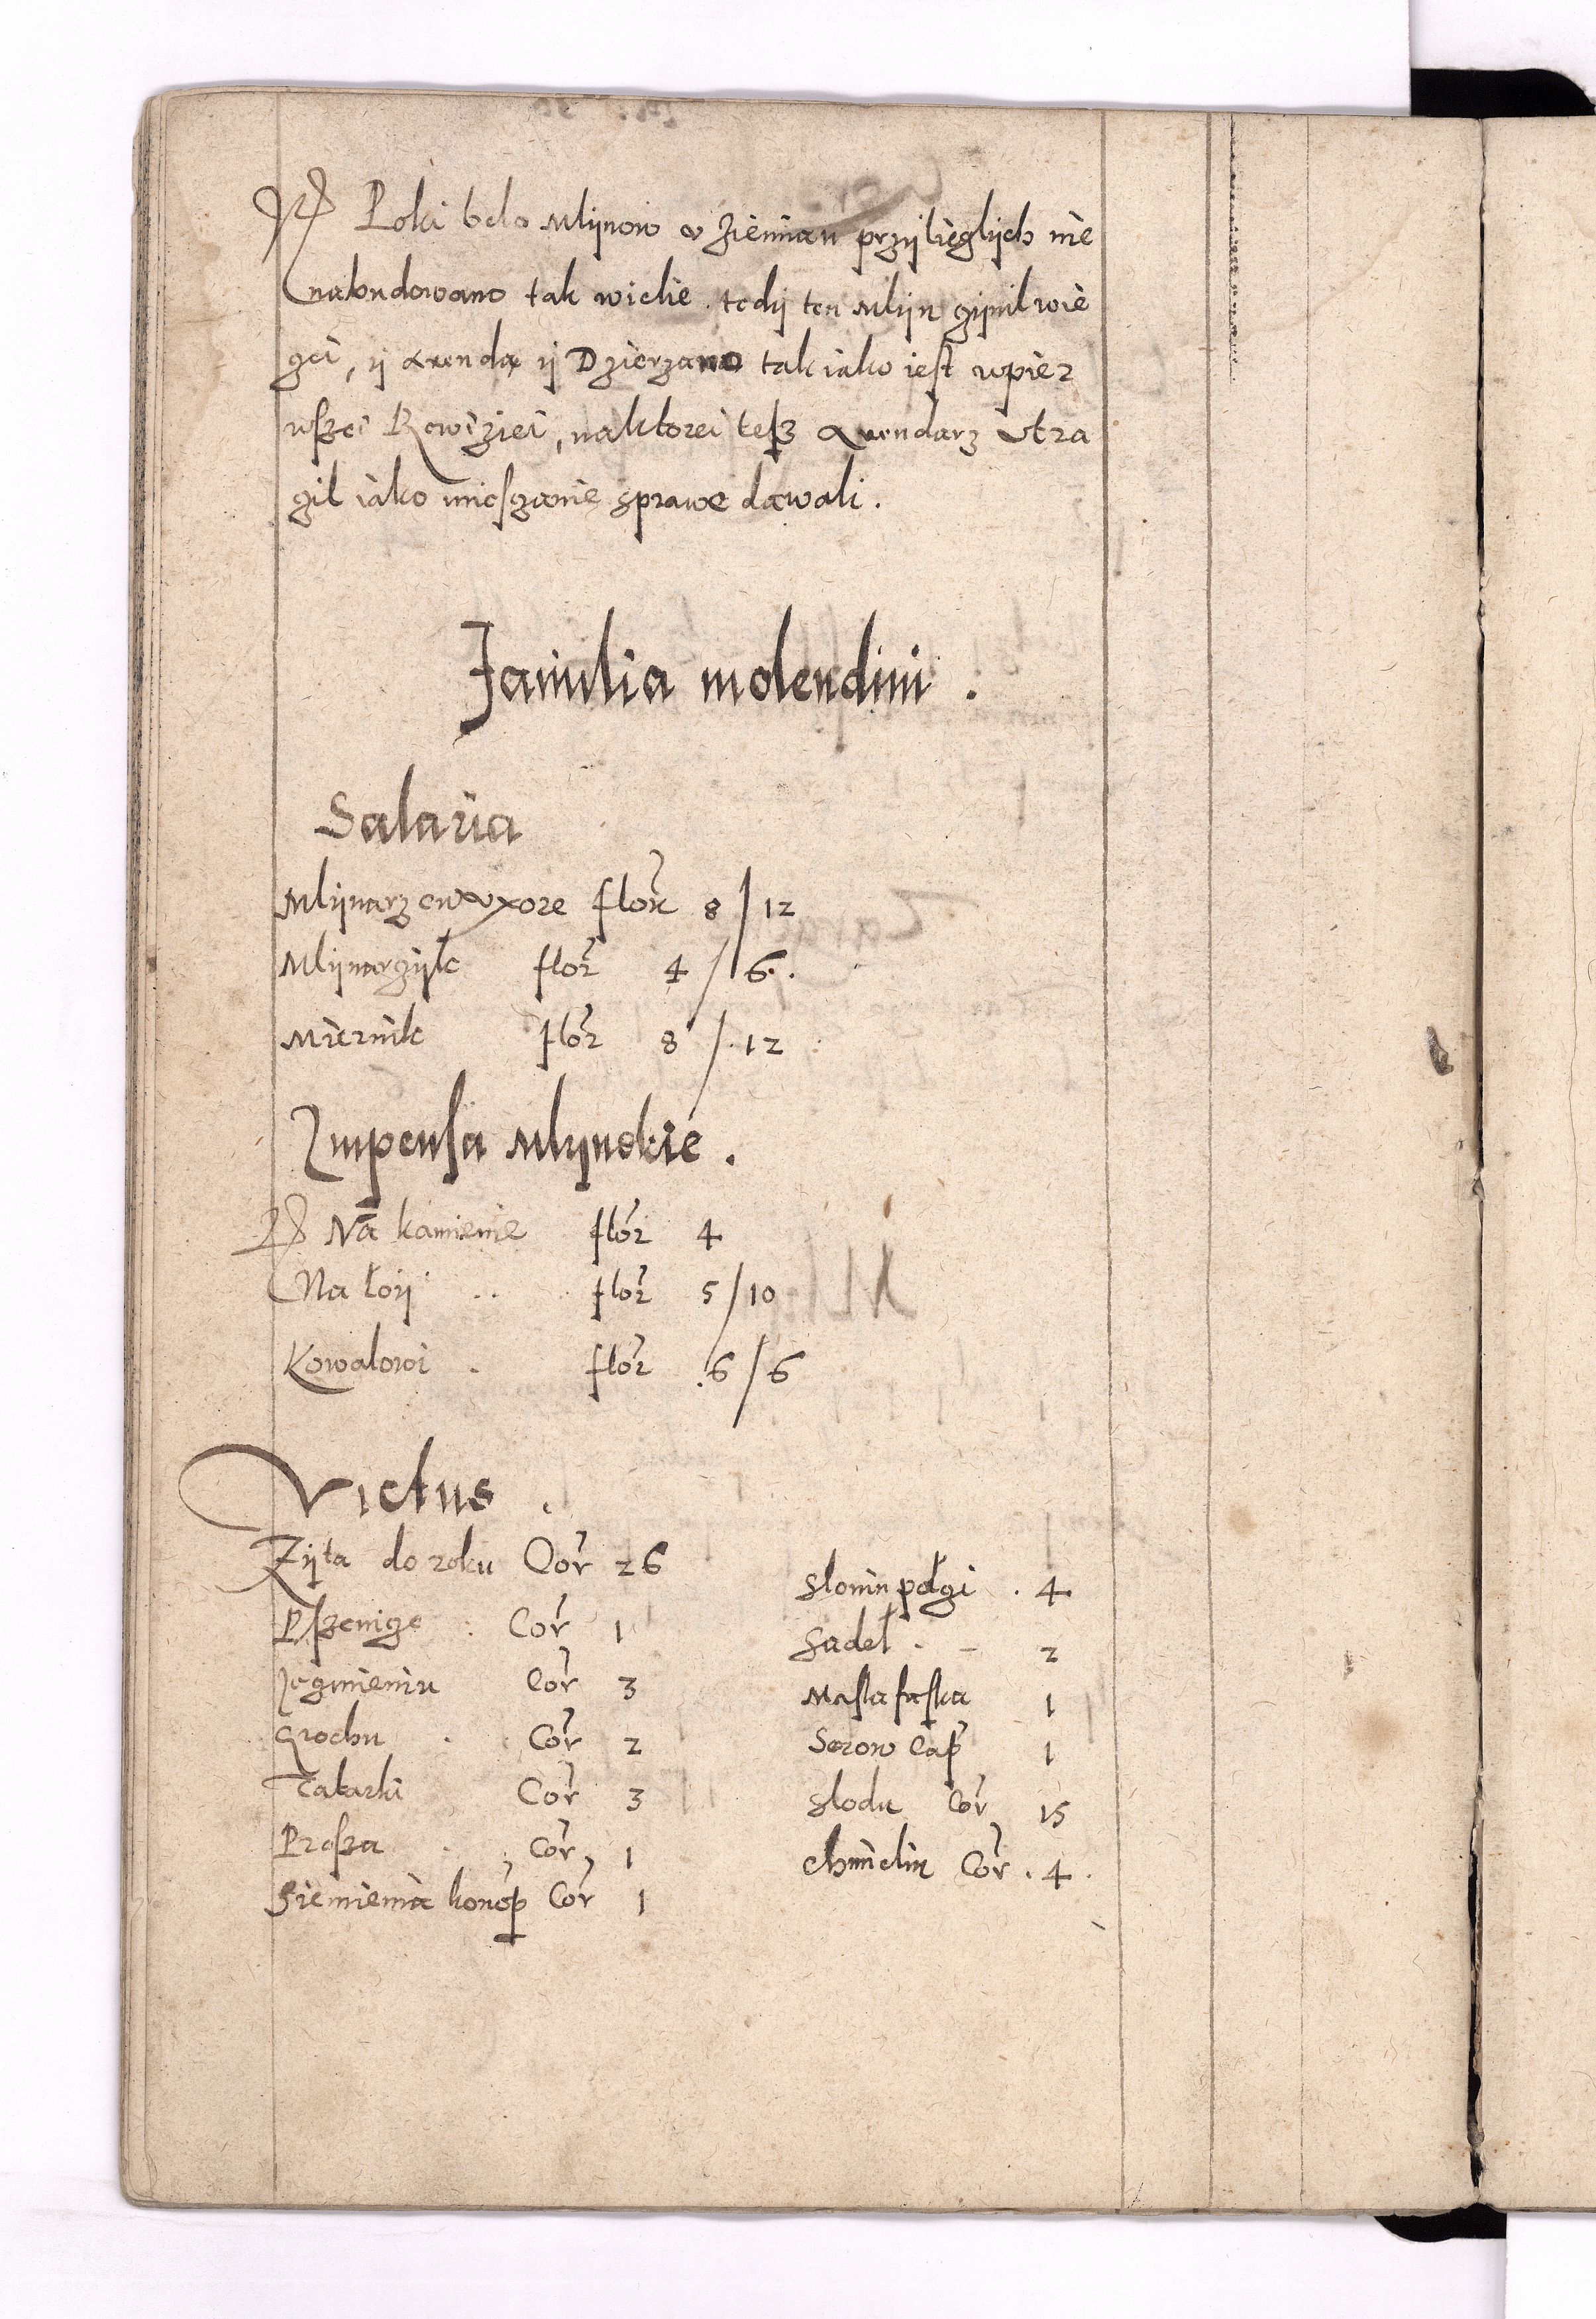 Poki belo Mlynow v ziemian przylieglych nie
nabudowano tak wielie tedy ten Mlyn czynil wie
czei, y arendą y Dzierzano tak iako iest wpier
wszei Rewiziei, naktorei tesz Arendarz vtra
czil iako miesczanie sprawe dawali.
Familia molendini.
Salaria
Mlynarz cum vxore flor 8/12
Mlynarczyk flor 4/6.
Miernik flor 8/12
Impensa Mlynskie.
Na kamienie flor 4
Na loy flor 5/10
Kowalowi flor 6/6
Victus.
Zyta do roku Cor 26
Pszenicze Cor 1
Jeczmieniu Cor 3
Grochu Cor 2
Tatarki Cor 3
Prosza Cor 1
Siemienia konop Cor 1
Slonin polczi 4
Sadel 2
Masla faska 1
Serow Cap 1
Slodu Cor 15
Chmieliu Cor 4